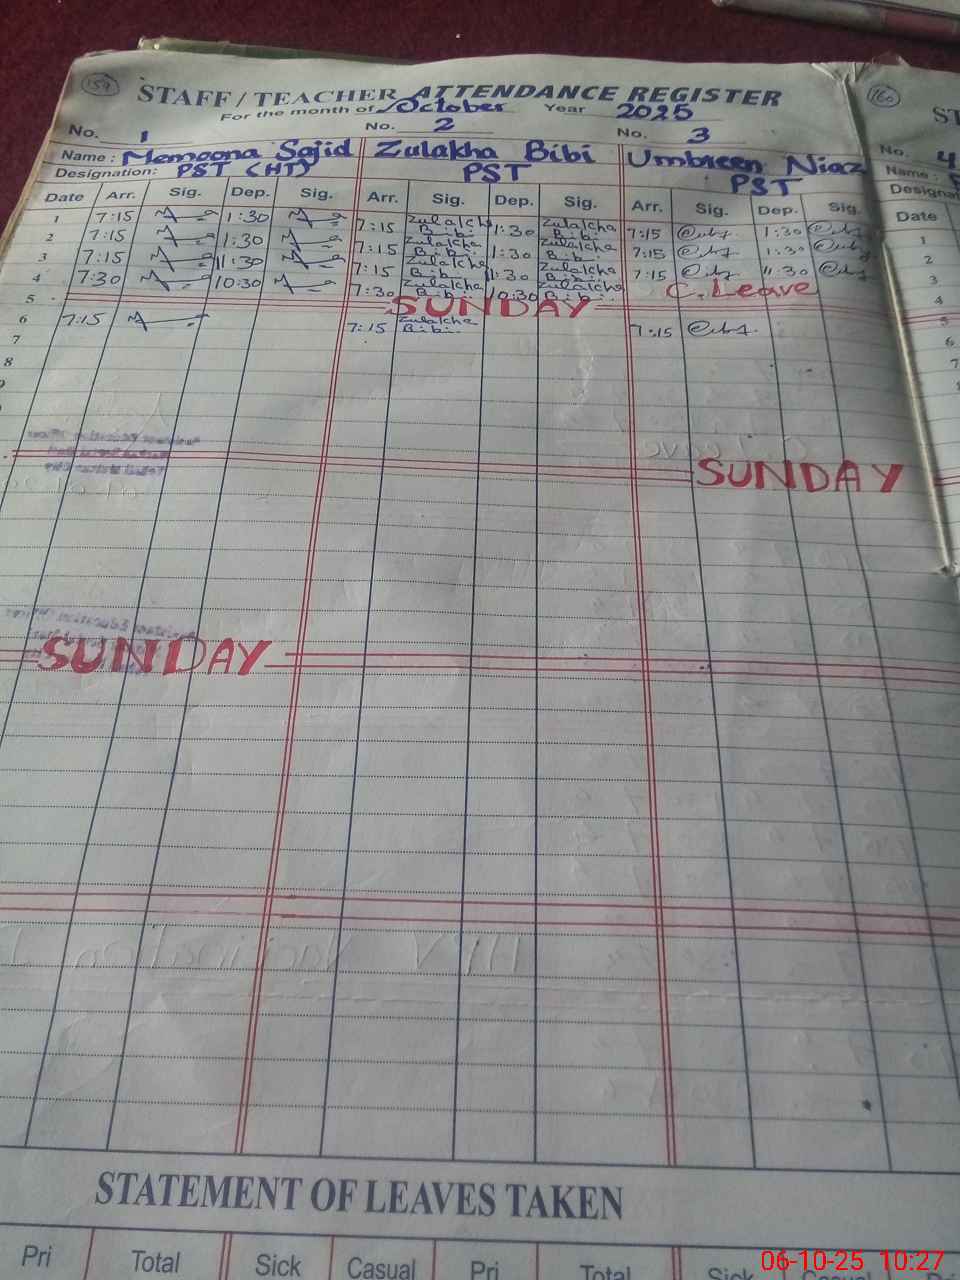 159
STAFF / TEACHER ATTENDANCE REGISTER
For the month of October Year 2025
160
No. 1 No. 2 No. 3
Name : Memoona Sajid Zulakha Bibi Umbreen Niaz
Designation: PST (HT) PST PST
Date Arr. Sig. Dep. Sig. Arr. Sig. Dep. Sig. Arr. Sig. Dep. Sig.
1 7:15 1:30 7:15 Zulakha Bibi 1:30 Zulakha Bibi 7:15 1:30
2 7:15 1:30 7:15 Zulakha Bibi 1:30 Zulakha Bibi 7:15 1:30
3 7:15 11:30 7:15 Zulakha Bibi 11:30 Zulakha Bibi 7:15 11:30
4 7:30 10:30 7:30 Zulakha Bibi 10:30 Zulakha Bibi C.Leave
5 SUNDAY
6 7:15 7:15 Zulakha Bibi 7:15
7
8
SUNDAY
SUNDAY
STATEMENT OF LEAVES TAKEN
Pri Total Sick Casual Pri Total Sick Casual Pri
No. 4
Name :
Date
1
2
3
4
5
6
7
8
06-10-25 10:27